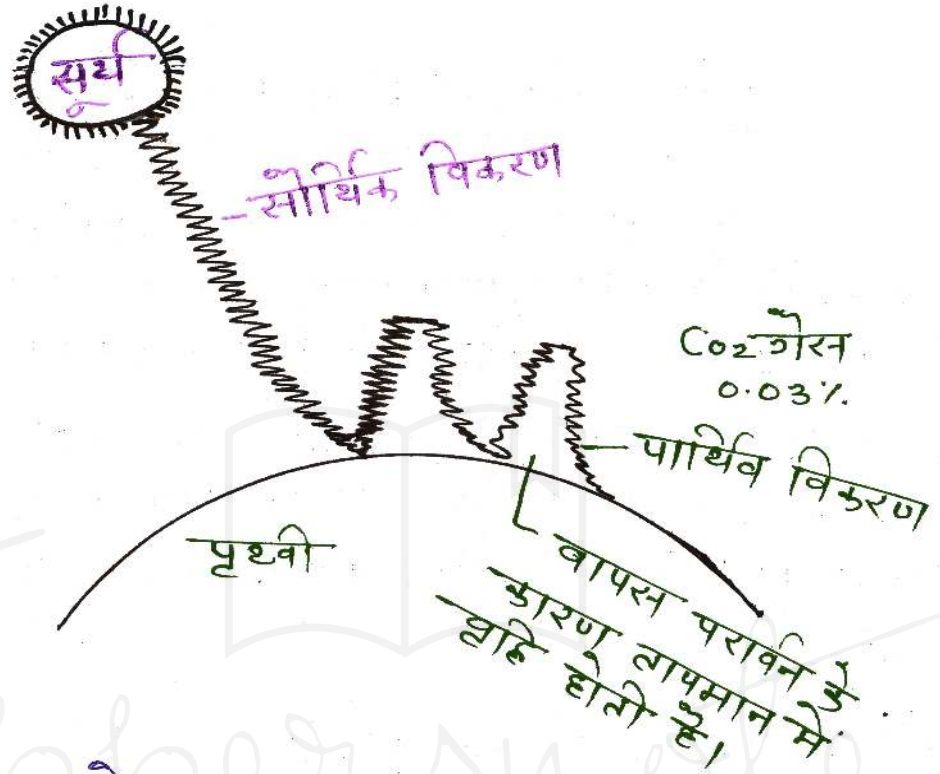 सूर्य
सौर्यिक विकरण
CO2 गैस
0.03%.
पार्थिव विकरण
पृथ्वी
वापस परार्वन के
कारण तापमान में
वृद्धि होती है।